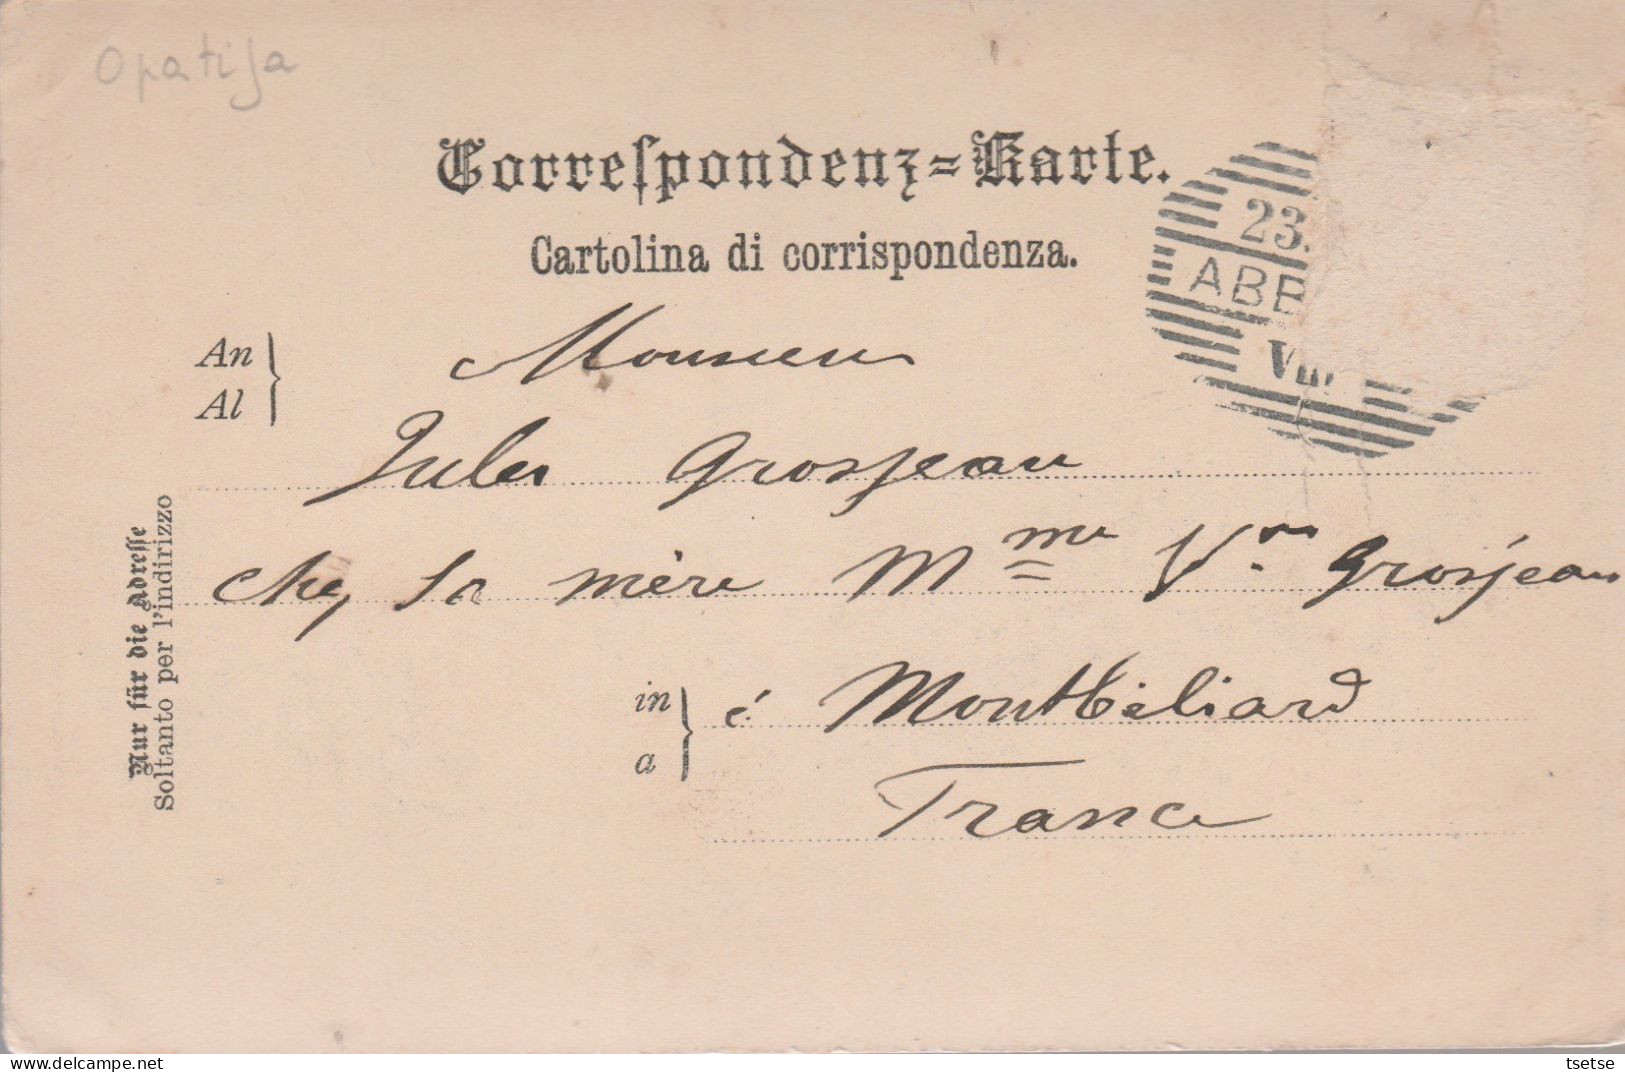 Opatija
Correſpondenz=Karte.
Cartolina di corrispondenza.
23.
ABB
VIII
An
Al
Monsieur
Jules Grosjean
chez sa mère Mme Vve Grosjean
in
a
à Montbéliard
France
Nur für die Adreſſe
Soltanto per l'indirizzo
delcampe.net
tsetse